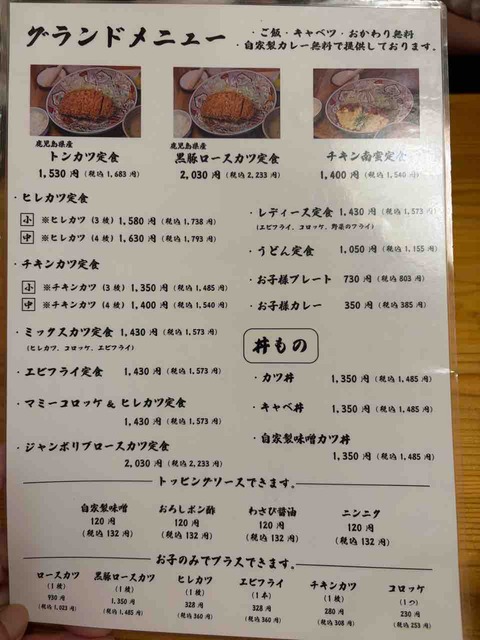 グランドメニュー
・ご飯・キャベツ・おかわり無料
・自家製カレー無料で提供しております。
鹿児島県産
トンカツ定食
1,530 円 (税込 1,683 円)
鹿児島県産
黒豚ロースカツ定食
2,030 円 (税込 2,233 円)
チキン南蛮定食
1,400 円 (税込 1,540 円)
・ヒレカツ定食
小 ※ヒレカツ (3 枚) 1,580 円 (税込 1,738 円)
中 ※ヒレカツ (4 枚) 1,630 円 (税込 1,793 円)
・チキンカツ定食
小 ※チキンカツ (3 枚) 1,350 円 (税込 1,485 円)
中 ※チキンカツ (4 枚) 1,400 円 (税込 1,540 円)
・ミックスカツ定食 1,430 円 (税込 1,573 円)
(ヒレカツ、コロッケ、エビフライ)
・エビフライ定食 1,430 円 (税込 1,573 円)
・マミーコロッケ & ヒレカツ定食
1,430 円 (税込 1,573 円)
・ジャンボリブロースカツ定食
2,030 円 (税込 2,233 円)
・レディース定食 1,430 円 (税込 1,573 円)
(エビフライ、コロッケ、野菜のフライ)
・うどん定食 1,050 円 (税込 1,155 円)
・お子様プレート 730 円 (税込 803 円)
・お子様カレー 350 円 (税込 385 円)
丼もの
・カツ丼 1,350 円 (税込 1,485 円)
・キャベ丼 1,350 円 (税込 1,485 円)
・自家製味噌カツ丼
1,350 円 (税込 1,485 円)
トッピングソースできます。
自家製味噌 おろしポン酢 わさび醤油 ニンニク
120 円 120 円 120 円 120 円
(税込 132 円) (税込 132 円) (税込 132 円) (税込 132 円)
お子のみでプラスできます。
ロースカツ 黒豚ロースカツ ヒレカツ エビフライ チキンカツ コロッケ
(1 枚) (1 枚) (1 枚) (1 本) (1 枚) (1 つ)
930 円 1,350 円 328 円 328 円 280 円 230 円
(税込 1,023 円) (税込 1,485 円) (税込 360 円) (税込 360 円) (税込 308 円) (税込 253 円)